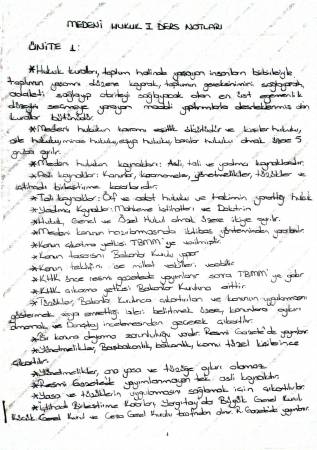 MEDENİ HUKUK I DERS NOTLARI
ÜNİTE 1:
*Hukuk kuralları, toplum halinde yaşayan insanların birbiriyle,
toplumun yaşamını düzene koyarak, toplumun gereksinimini sağlayarak,
adaleti sağlayıp otoriteyi sağlayacak olan en üst egemenlik
düzeyin seçmeye yarayan maddi yaptırımlarla desteklenmiş olan
kurallar bütünüdür.
*Medeni hukukun kavramı eşitlik
aile hukuku, miras hukuku, eşya hukuku, borçlar hukuku olmak üzere 5
gruba ayrılır.
*Medeni hukukun kaynakları: Asli, tali ve yardımcı kaynaklardır.
*Asli kaynaklar: Kanunlar, kararnameler, yönetmelikler, tüzükler ve
içtihadı birleştirme kararlarıdır.
*Tali kaynaklar: Örf ve adet hukuku ve hakimin yarattığı hukuk
*Yardımcı Kaynaklar: Mahkeme içtihatları ve Doktrin
*Hukuk, Genel ve Özel Hukuk olmak üzere ikiye ayrılır.
*Medeni kanunun hazırlanmasında iktibas yönteminden yararlanılır.
*Kanun çıkartma yetkisi TBMM'ye verilmiştir.
*Kanun tasarısını Bakanlar Kurulu yapar.
*Kanun teklifini ise millet vekilleri verebilir.
*KHK önce resmi gazetede yayınlanır sonra TBMM'ye gider
*KHK çıkarma yetkisi Bakanlar Kuruluna aittir.
*Tüzükler, Bakanlar Kurulunca çıkartılan ve kanunun uygulanmasını
göstermek veya emrettiği işleri belirtmek üzere, kanunlara aykırı
olmamak ve Danıştay incelemesinden geçecek çıkartılır.
*Bir konuna dayanma zorunluluğu vardır. Resmi Gazete'de yayınlanır.
*Yönetmelikler, Başbakanlık, bakanlık, kamu tüzel kişilerince
çıkartılır.
*Yönetmelikler, ana yasa ve tüzüğe aykırı olamaz.
*Resmi Gazetede yayımlanmayan tek asli kaynaktır.
*Yasa ve tüzüklerin uygulanmasını sağlamak için çıkartılır.
*İçtihadı Birleştirme Kararları, Yargıtay'da Büyük Genel Kurul
Hukuk Genel Kurul ve Ceza Genel Kurulu tarafından alınır. R. Gazete'de yayınlanır.
1